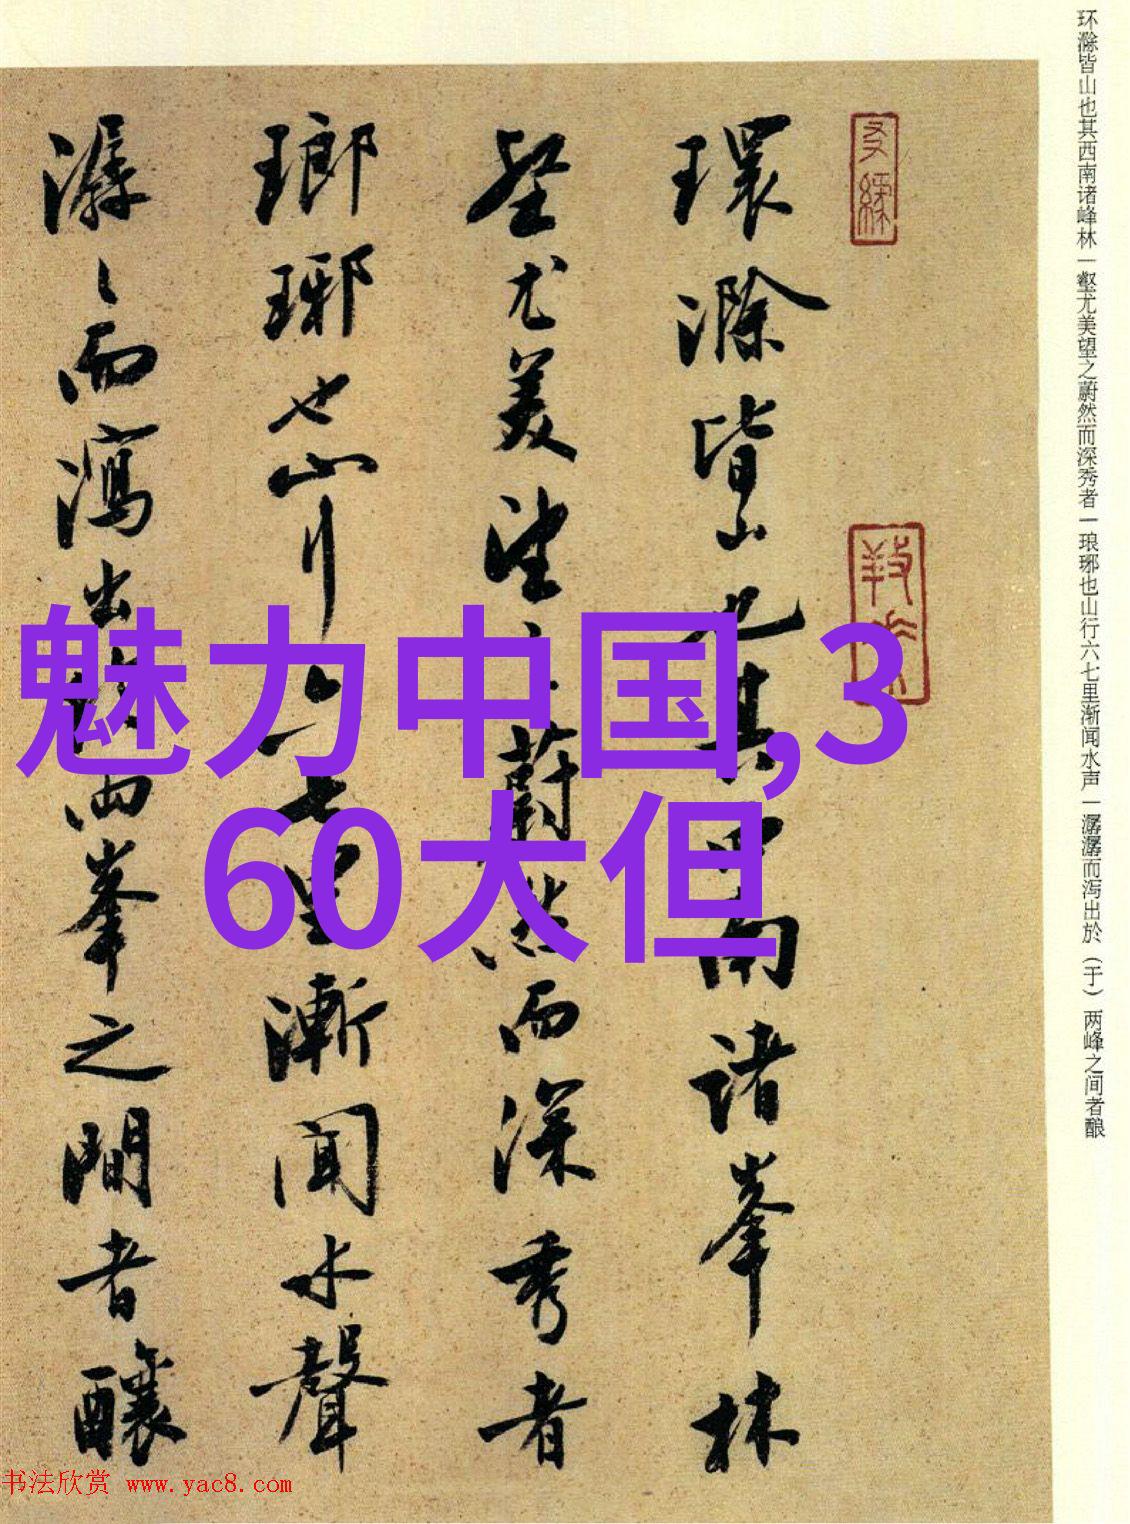 环滁皆山也其西南诸峰林一壑尤美望之蔚然而深秀者一琅琊也山行六七里渐闻水声一潺潺而泻出於（于）两峰之间者酿
環滁皆山也其西南諸峯林
壑尤美望之蔚然而深秀者
瑯琊也山行六七里漸聞水聲
潺〻而瀉出於兩峯之間者釀
魅力中国,3
60大但
书法欣赏 www.yac8.com